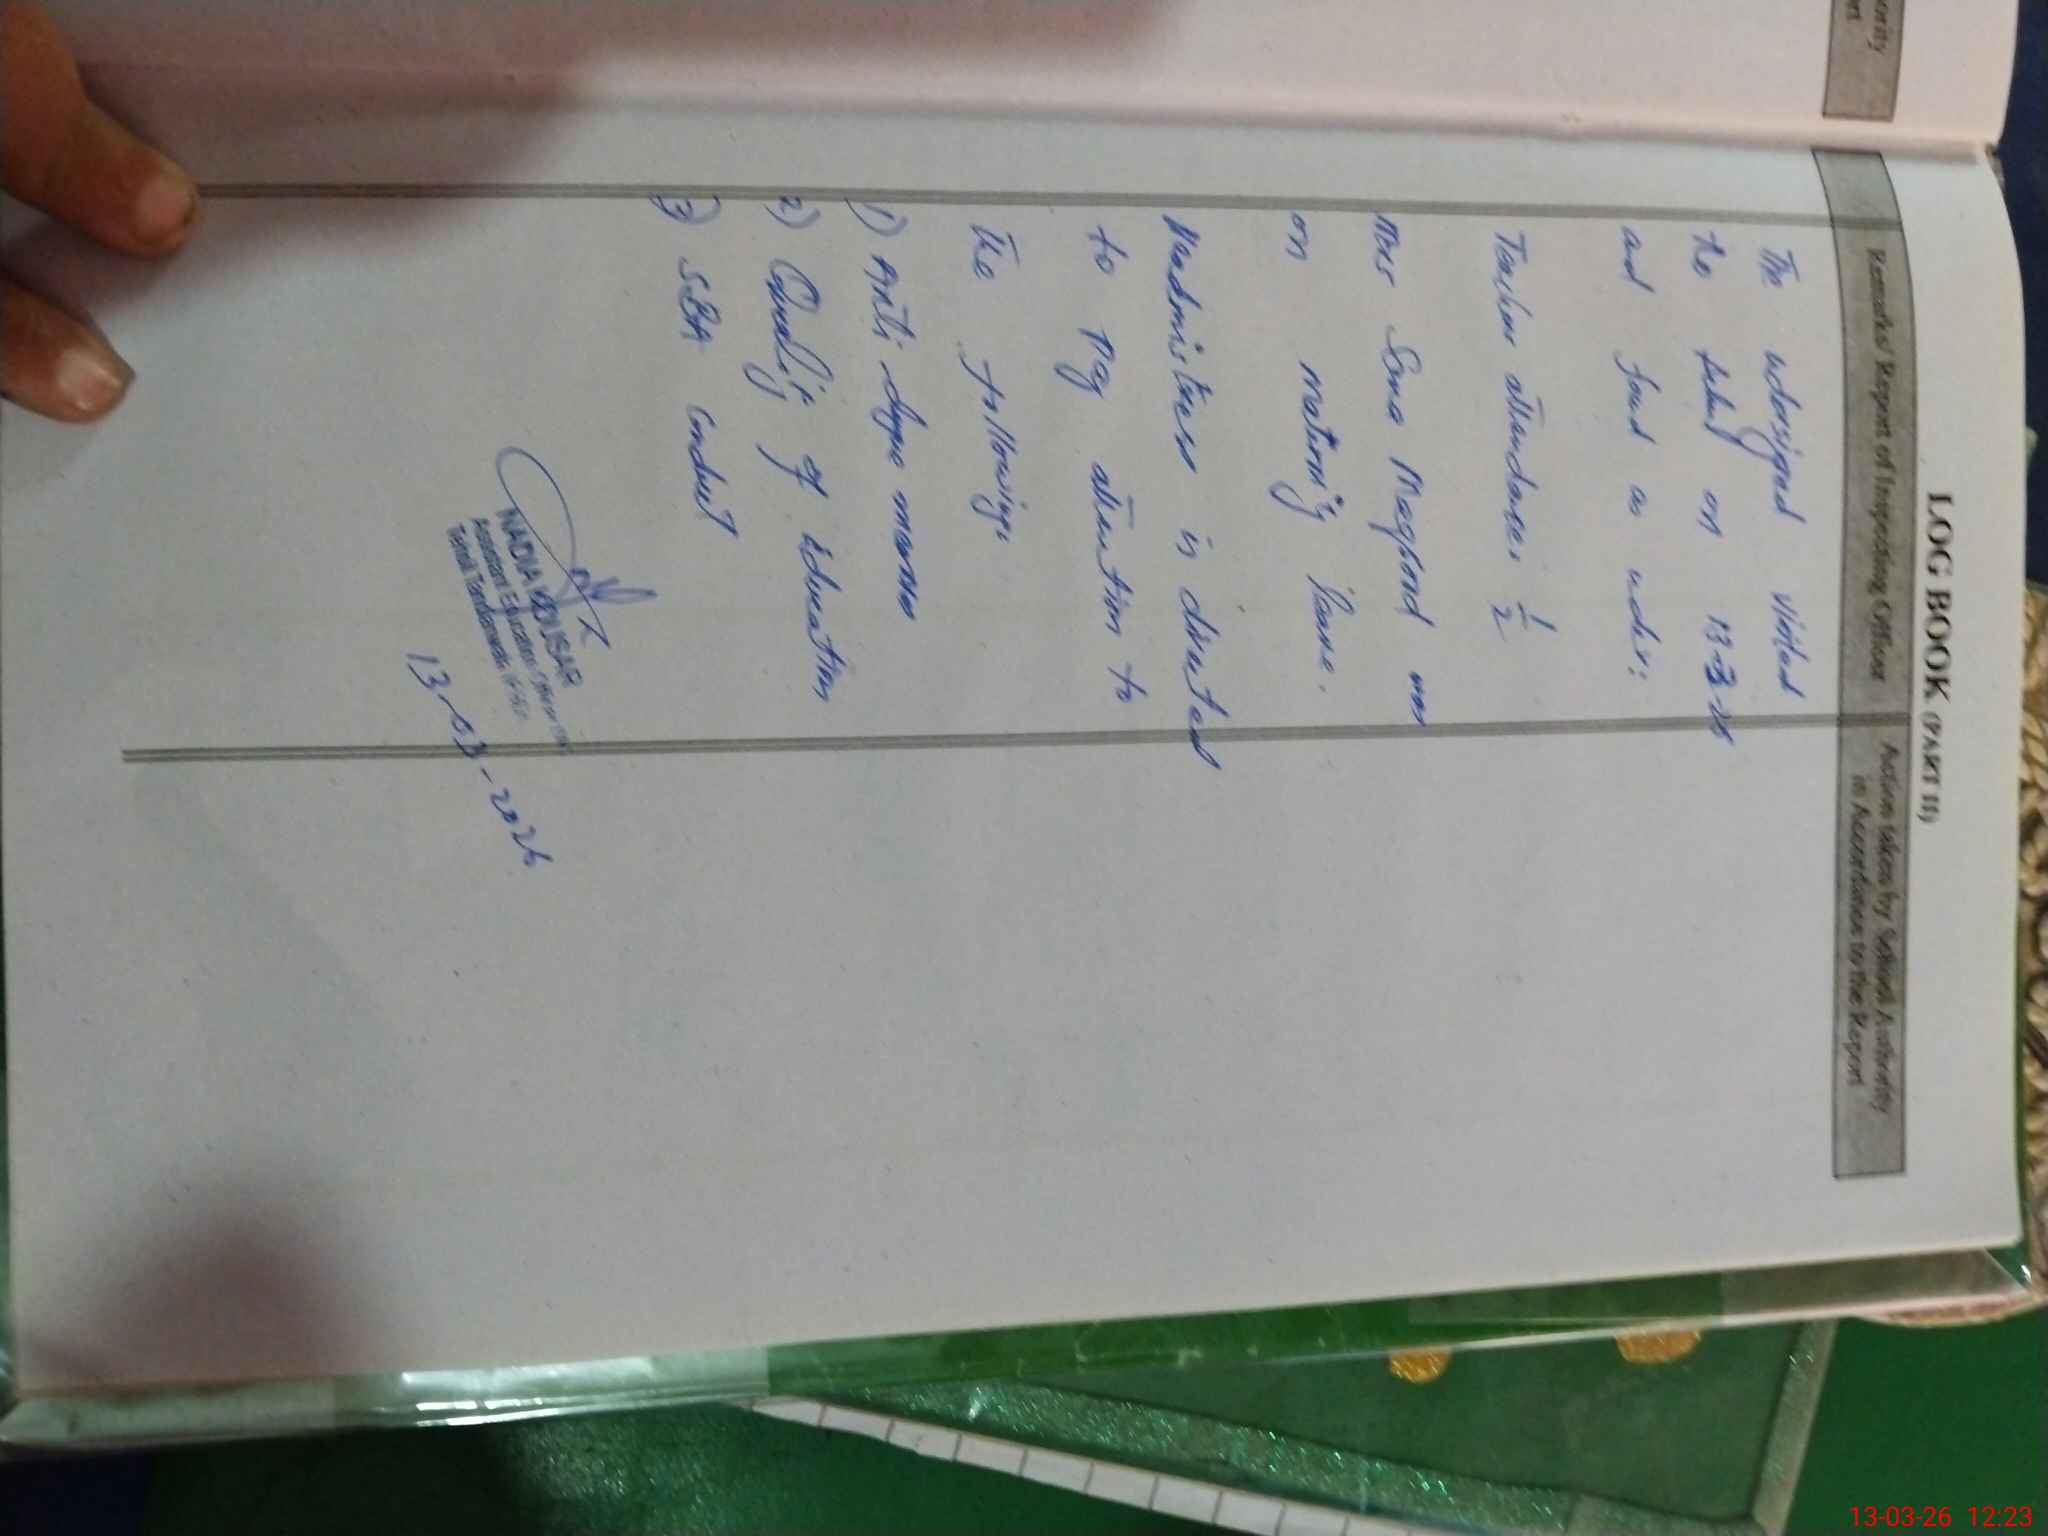 LOG BOOK (PART II)
Remarks/ Report of Inspecting Officer
Action taken by School Authority
in Accordance to the Report
The undersigned visited
the school on 13-3-26
and found as under:
Teacher attendance: 1/2
Mrs Sana Maqsood was
on maternity leave.
Headmistress is directed
to Pay attention to
the following.
1) Anti dengue
2) Quality of Education
3) SBA Conduct
NADIA KOUSAR
Assistant Education Officer
Tehsil Tandlianwala
13-03-2026
ority
ort
13-03-26 12:23